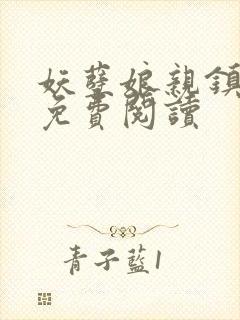 妖孽娘親鎮
免費閱讀
青子藍1